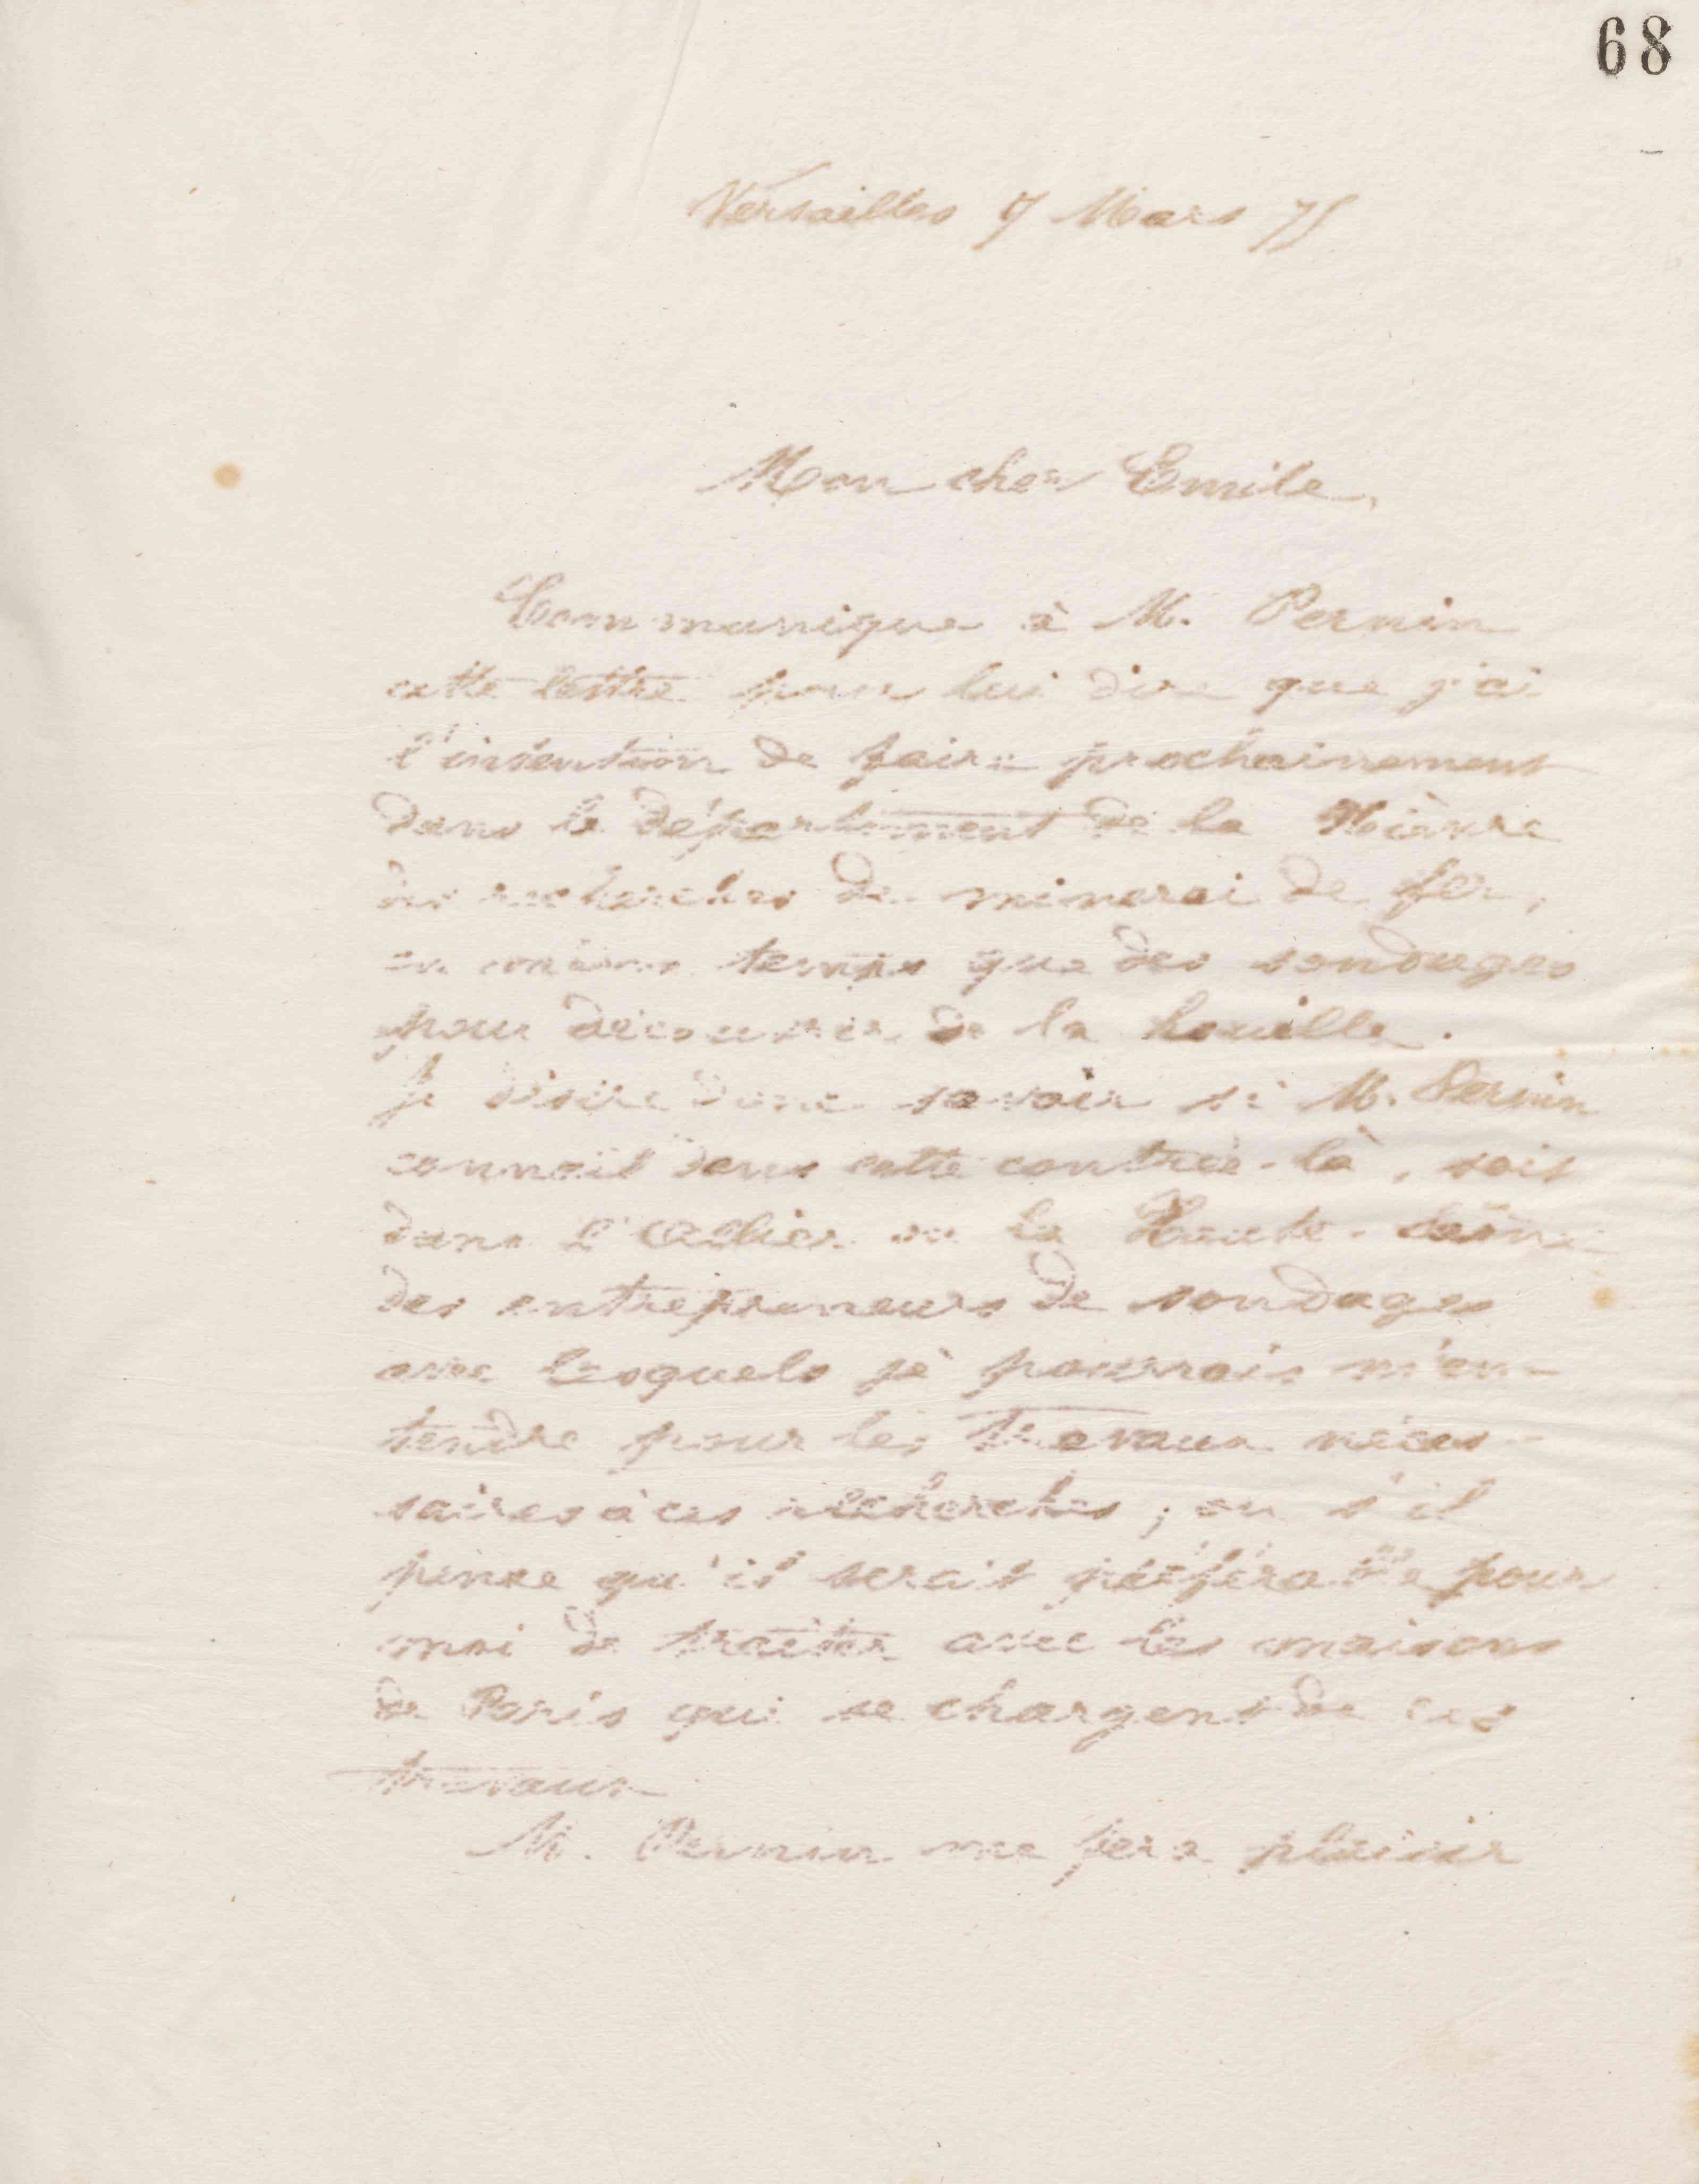 68
Versailles 7 Mars 75
Mon cher Emile,
Communique à M. Pernin
cette lettre pour lui dire que j'ai
l'intention de faire prochainement
dans le département de la Nièvre
des recherches de minerai de fer,
en même temps que des sondages
pour découvrir de la houille.
Je désire donc savoir si M. Pernin
connait dans cette contrée-là, soit
dans l'Allier ou la Haute-Saône
des entrepreneurs de sondages
avec lesquels je pourrais m'en-
tendre pour les travaux néces-
saires à ces recherches ; ou s'il
pense qu'il serait préférable pour
moi de traiter avec les maisons
de Paris qui se chargent de ces
travaux
M. Pernin me fera plaisir